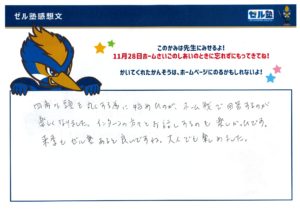 ゼル塾感想文
このかみは先生にみせるよ!
11月28日ホームさいこのしあいのときに忘れずにもってきてね!
かいてくれたかんそうは、ホームページにのるかもしれないよ!
四角い頭を丸くする為に始めたのが、ホーム戦で回答するのが
楽しくなりました。インターンの方々とお話しするのも楽しかったです。
来季もゼル塾あると良いですね。大人でも楽しめました。